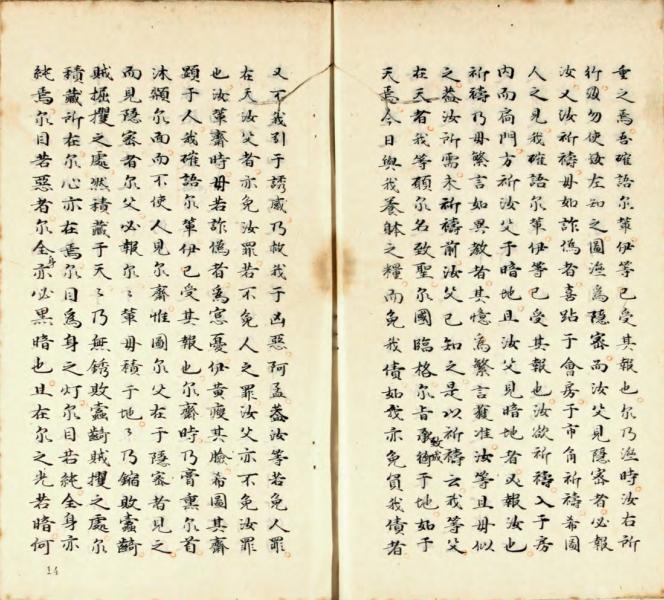 重之焉吾確語尔等伊等已受其報也尔乃施時汝右所
行毋勿使汝左知之圖施為隱密而汝父見隱密者必報
汝又汝祈禱毋如詐偽者喜跕于會房于市角祈禱希圖
人之見我確語尔輩伊等已受其報也汝欲祈禱入于房
内而扃門方祈汝父于暗地且汝父見暗地者又報汝也
祈禱乃毋繁言如異教者其憶為繁言獲准汝等且毋似
之葢汝所需未祈禱前汝父已知之是以祈禱云我等父
在天者我等願尔名致聖尔國臨格尔旨致成于地如于
天焉今日與我養躰之糧而免我債如我亦免負我債者
又不我引于誘感乃救我于凶惡阿孟葢汝等若免人罪
在天汝父者亦免汝罪若不免人之罪汝父亦不免汝罪
也汝輩齋時毋若詐偽者為窓憂伊黄瘦其臉希圖其齋
顕于人我確語尔輩伊已受其報也尔齋時乃膏熏尔首
沐頮尔面而不使人見尔齋惟圖尔父在于隱密者見之
而見隱密者尔父必報尔〻輩毋積于地〻乃鏽敗蠹齮
賊掘攫之處然積藏于天〻乃無銹敗蠹齮賊攫之處尔
積藏所在尔心亦在焉尔目為身之灯尔目若純全身亦
純焉尔目若惡者尔全身亦必黒暗也且在尔之光若暗何
14